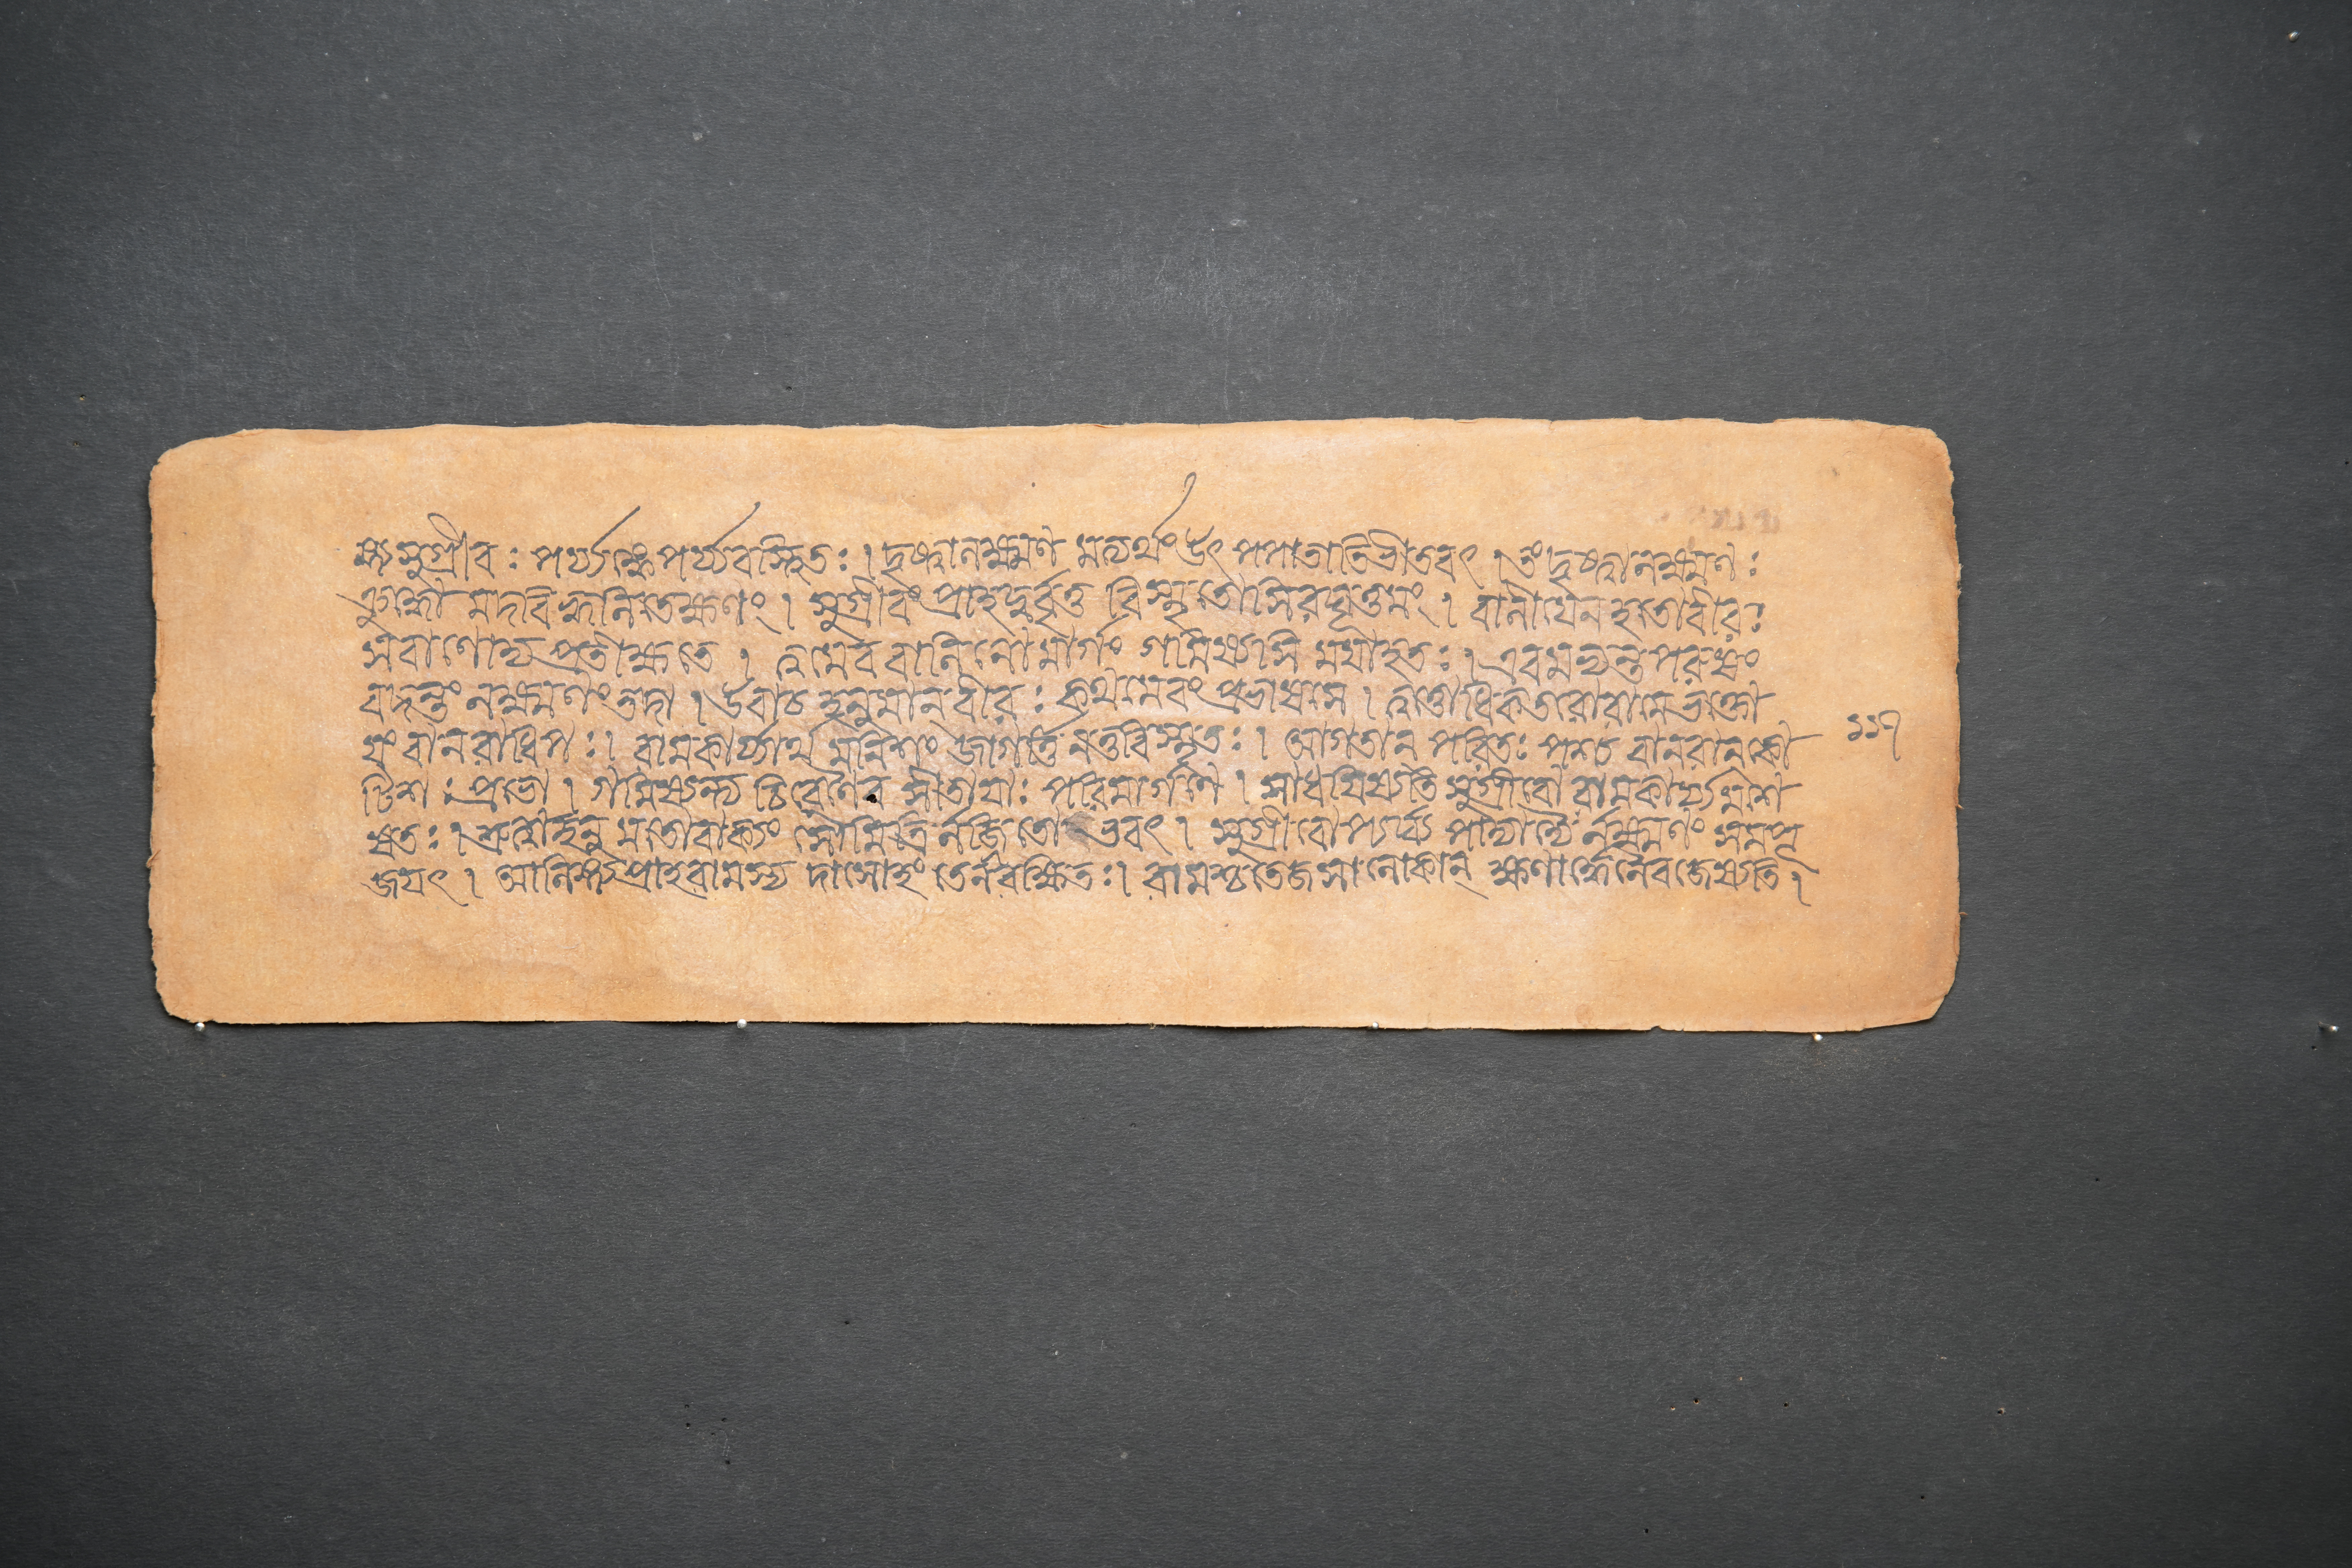 ঙ্গ্যসুগ্রীবঃ পর্য্যঙ্কে পর্য্যবস্থিতঃ । দৃষ্ট্বালক্ষ্মণমত্যর্থং উৎপপাতাতিভীতবৎ । তং দৃষ্ট্বালক্ষ্মণঃ
ক্রুদ্ধো মদবিহ্বলিতেক্ষণং । সুগ্রীবং প্রাহদুর্বৃত্ত বিস্মৃতোসিরঘূত্তমং । বালীযেনহতোবীরঃ
সবাণোদ্য প্রতীক্ষতে । ত্বমেববালিনোমার্গং গমিষ্যসি ময়াহতঃ । এবমত্যন্তপরুষং
বদন্তং লক্ষ্মণং তদা । উবাচ হনুমান্ বীরঃ কথমেবং প্রভাষসে । ত্বত্তোধিকতরোরামেভক্তো
য়ং বানরাধিপঃ । রামকার্য্যার্থমনিশং জাগর্ত্তি নতুবিস্মৃতঃ । আগতান্ পরিতঃ পশ্য বানরান্ কো
টিশঃ প্রভো । গমিষ্যন্ত্যচিরেণৈব সীতায়াঃ পরিমার্গণে । সাধয়িষ্যতি সুগ্রীবো রামকার্য্যমশে
ষতঃ । শ্রুত্বাহনুমতোবাক্যং সৌমিত্রির্লজ্জিতোভবৎ । সুগ্রীবোপ্যর্ঘ্যপাদ্যাদ্যৈর্লক্ষ্মণং সমপূ
জয়ৎ । আলিঙ্গ্যপ্রাহরামস্য দাসোহং তেনরক্ষিতঃ । রামস্তুতেজসালোকান্ ক্ষণার্দ্ধেনৈবজেষ্যতি ।
১১৭